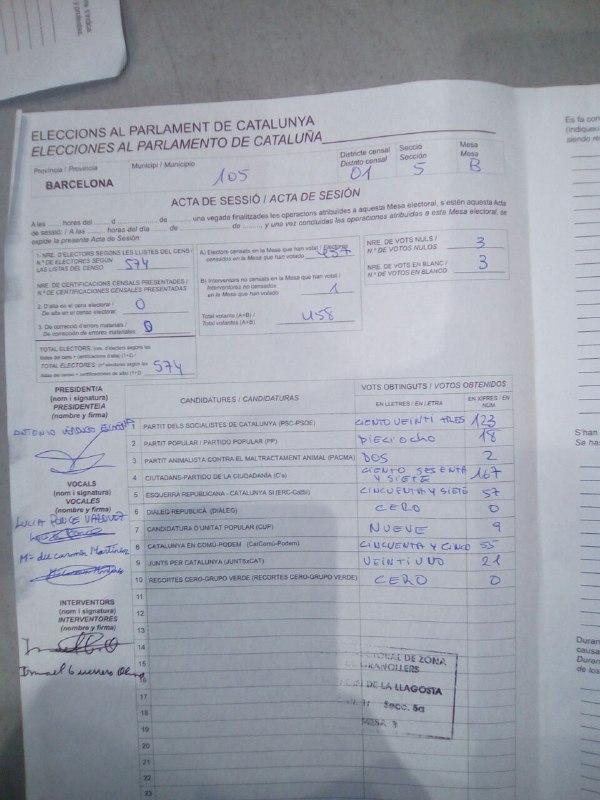 ELECCIONS AL PARLAMENT DE CATALUNYA
ELECCIONES AL PARLAMENTO DE CATALUÑA
Província / Provincia
BARCELONA
Municipi / Municipio
105
Districte censal
Distrito censal
01
Secció
Sección
5
Mesa
Mesa
B
ACTA DE SESSIÓ / ACTA DE SESIÓN
A les ...... hores del ...... d ...... de ......, una vegada finalitzades les operacions atribuïdes a aquesta Mesa electoral, s'estén aquesta Acta
de sessió: / A las ...... horas del día ...... de ...... de ......, y una vez concluidas las operaciones atribuidas a esta Mesa electoral, se
expide la presente Acta de Sesión.
1. NRE. D'ELECTORS SEGONS LES LLISTES DEL CENS /
N.º DE ELECTORES SEGÚN
LAS LISTAS DEL CENSO
574
NRE. DE CERTIFICACIONS CENSALS PRESENTADES /
N.º DE CERTIFICACIONES CENSALES PRESENTADAS
2. D'alta en el cens electoral /
De alta en el censo electoral
0
3. De correcció d'errors materials /
De corrección de errores materiales
0
TOTAL ELECTORS
TOTAL ELECTORES
574
A) Electors censats en la Mesa que han votat / Electores
censados en la Mesa que han votado
457
B) Interventors no censats en la Mesa que han votat /
Interventores no censados
en la Mesa que han votado
1
Total votants (A+B) /
Total votantes (A+B)
458
NRE. DE VOTS NULS /
N.º DE VOTOS NULOS
3
NRE. DE VOTS EN BLANC /
N.º DE VOTOS EN BLANCO
3
PRESIDENT/A
(nom i signatura)
PRESIDENTE/A
(nombre y firma)
ANTONIO
VOCALS
(nom i signatura)
VOCALES
(nombre y firma)
LUCIA PONCE VAZQUEZ
Mª del Carmen Martínez
INTERVENTORS
(nom i signatura)
INTERVENTORES
(nombre y firma)
Ismael Guerrero
CANDIDATURES / CANDIDATURAS
VOTS OBTINGUTS / VOTOS OBTENIDOS
EN LLETRES / EN LETRA
EN XIFRES / EN NÚM.
1 PARTIT DELS SOCIALISTES DE CATALUNYA (PSC-PSOE) CIENTO VEINTI TRES 123
2 PARTIT POPULAR / PARTIDO POPULAR (PP) Dieciocho 18
3 PARTIT ANIMALISTA CONTRA EL MALTRACTAMENT ANIMAL (PACMA) DOS 2
4 CIUTADANS-PARTIDO DE LA CIUDADANÍA (C's) CIENTO SESENTA Y SIETE 167
5 ESQUERRA REPUBLICANA - CATALUNYA SI (ERC-CatSí) CINCUENTA Y SIETE 57
6 DIÀLEG REPUBLICÀ (DIÀLEG) CERO 0
7 CANDIDATURA D'UNITAT POPULAR (CUP) NUEVE 9
8 CATALUNYA EN COMÚ-PODEM (CatComú-Podem) CINCUENTA Y CINCO 55
9 JUNTS PER CATALUNYA (JUNTSxCAT) VEINTIUNO 21
10 RECORTES CERO-GRUPO VERDE (RECORTES CERO-GRUPO VERDE) CERO 0
11
12
13
14
15
16
17
18
19
20
21
22
23
DE ZONA
GRANOLLERS
DE LA LLAGOSTA
Secc. 5a
MESA
Es fa con
(Indiqueu
siendo re
S'han
Se ha
Durant
causa
Duran
de los